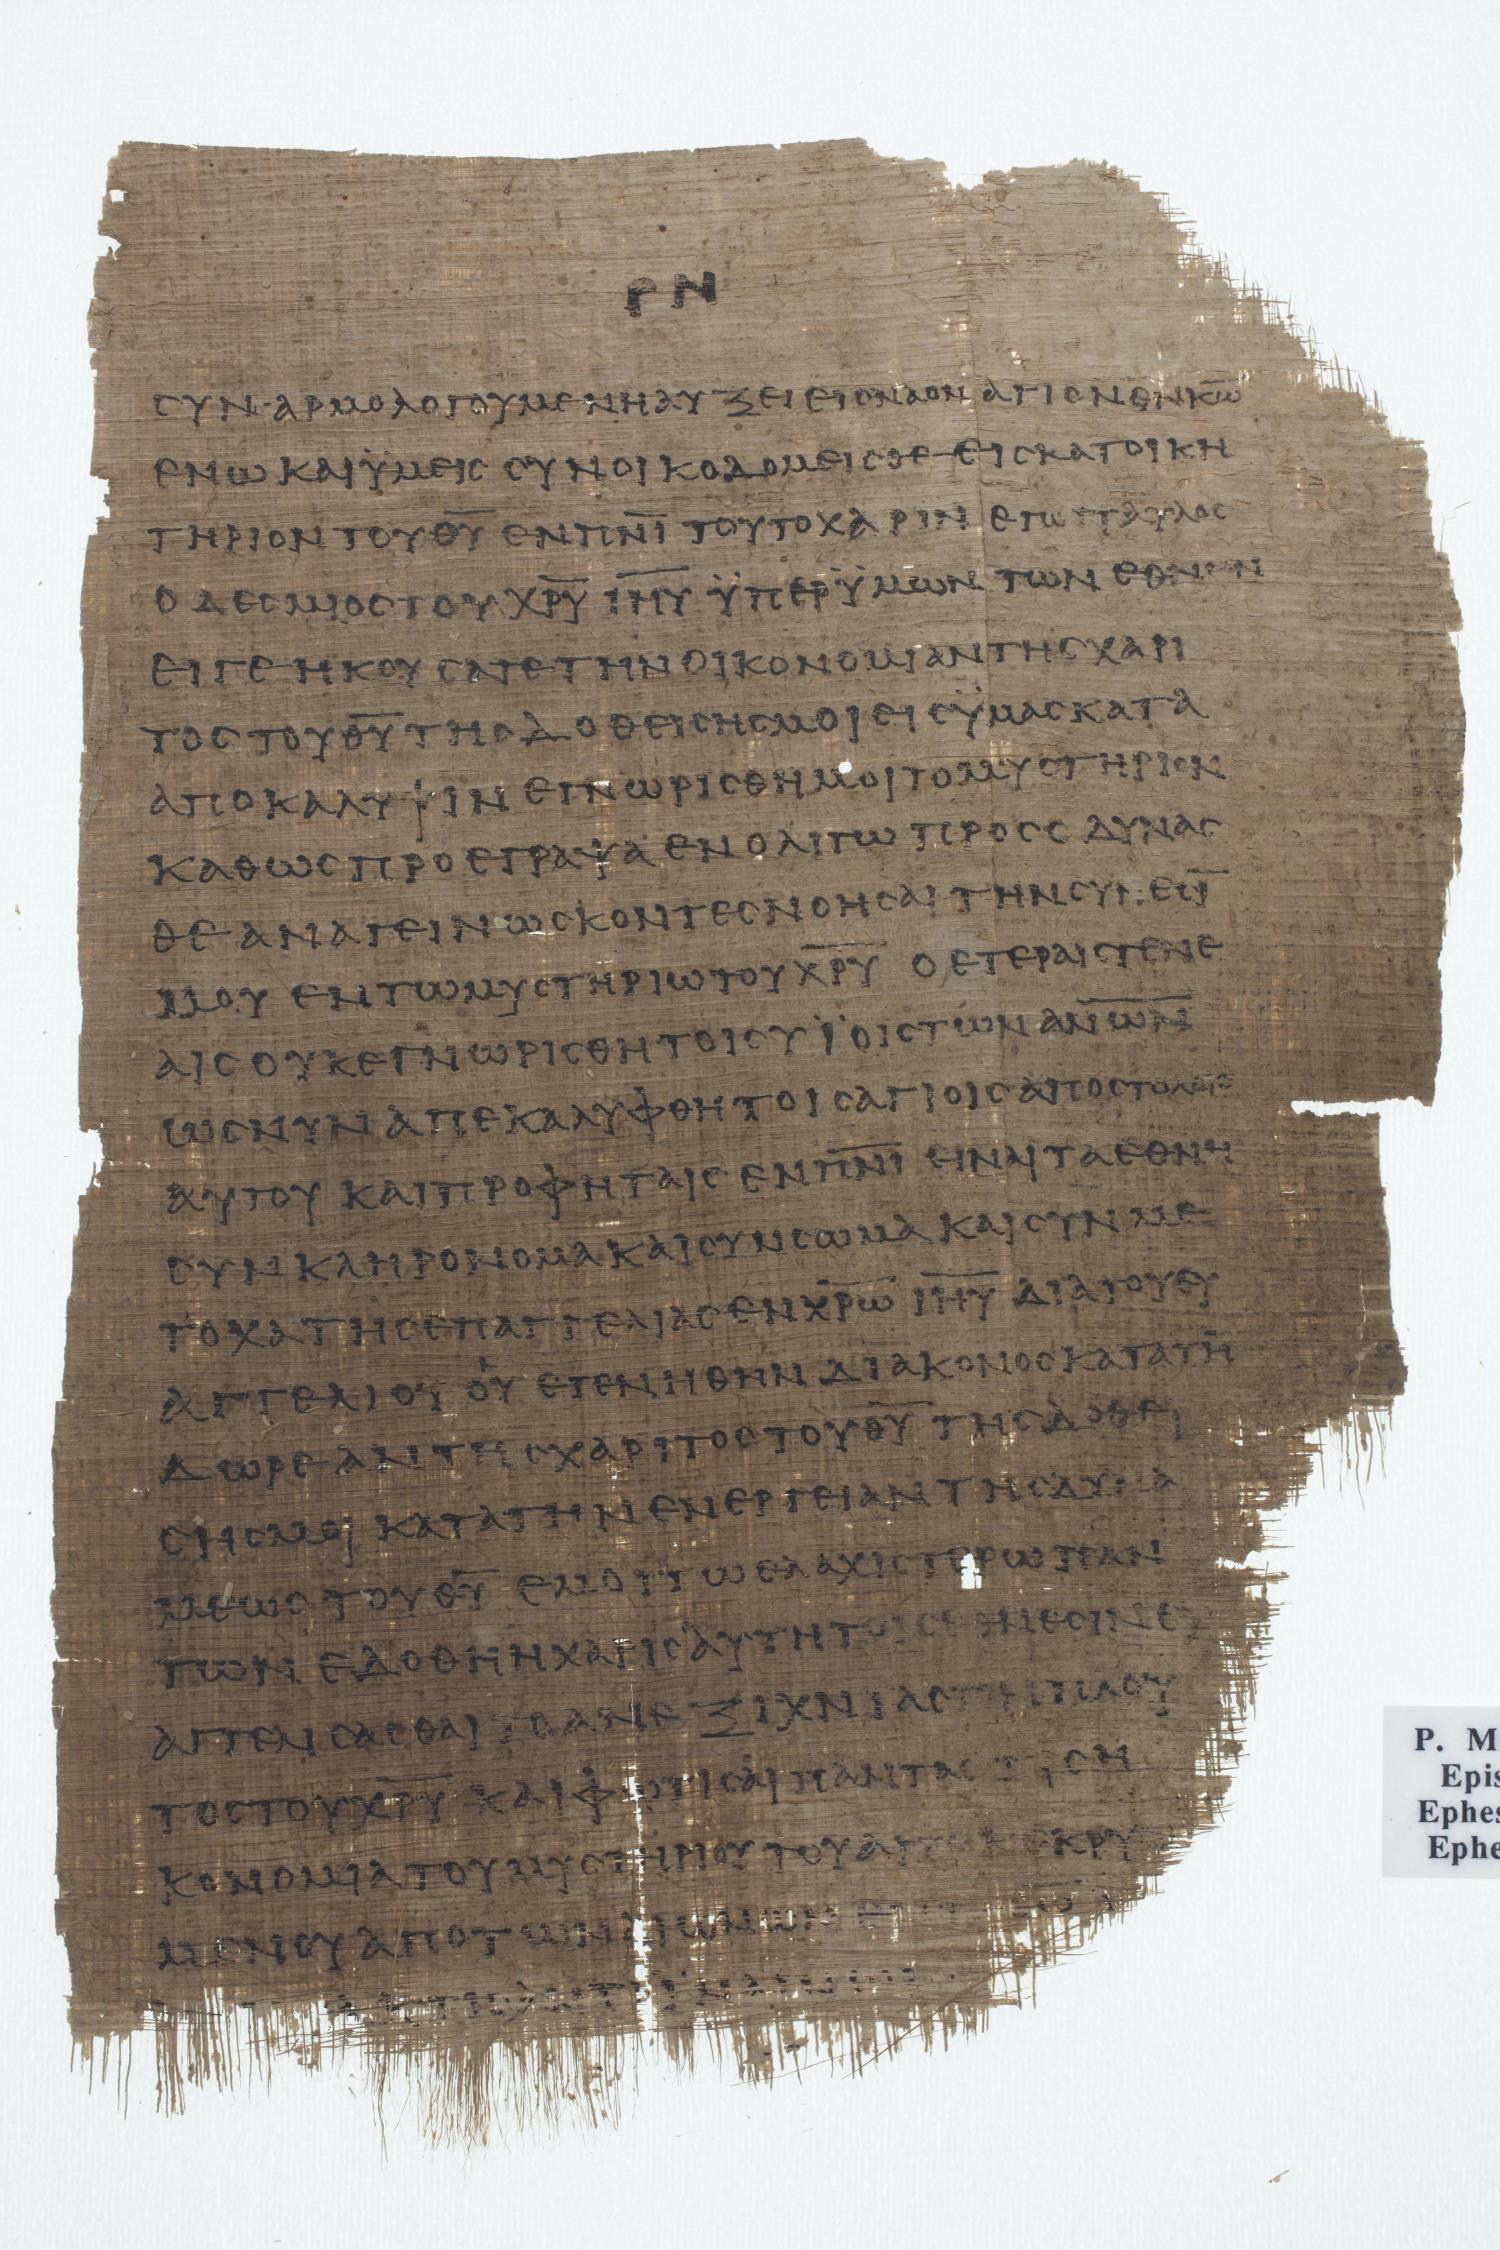 ΡΝ
ϹΥΝΑΡΜΟΛΟΓΟΥΜΕΝΗΑΥΞΕΙΕΙϹΝΑΟΝ ΑΓΙΟΝΕΝΚ̅Ω̅
ΕΝΩ ΚΑΙΫΜΕΙϹ ϹΥΝΟΙΚΟΔΟΜΕΙϹΘΕ ΕΙϹΚΑΤΟΙΚΗ
ΤΗΡΙΟΝΤΟΥΘ̅Υ̅ ΕΝΠ̅Ν̅Ι̅ ΤΟΥΤΟΧΑΡΙΝ ΕΓΩΠΑΥΛΟϹ
Ο ΔΕϹΜΙΟϹΤΟΥ Χ̅Ρ̅Υ̅ Ι̅Η̅Υ̅ ΫΠΕΡΫΜΩΝ ΤΩΝ ΕΘΝΩΝ
ΕΙΓΕΗΚΟΥϹΑΤΕΤΗΝΟΙΚΟΝΟΜΙΑΝΤΗϹΧΑΡΙ
ΤΟϹΤΟΥΘ̅Υ̅ΤΗϹΔΟΘΕΙϹΗϹΜΟΙΕΙϹΫΜΑϹΚΑΤΑ
ΑΠΟΚΑΛΥΨΙΝ ΕΓΝΩΡΙϹΘΗΜΟΙΤΟΜΥϹΤΗΡΙΟΝ
ΚΑΘΩϹΠΡΟΕΓΡΑΨΑ ΕΝΟΛΙΓΩ ΠΡΟϹϹ ΔΥΝΑϹ
ΘΕ ΑΝΑΓΕΙΝΩϹΚΟΝΤΕϹΝΟΗϹΑΙΤΗΝϹΥΝΕϹΙ̅
ΜΟΥ ΕΝΤΩΜΥϹΤΗΡΙΩΤΟΥΧ̅Ρ̅Υ̅ Ο ΕΤΕΡΑΙϹΓΕΝΕ
ΑΙϹ ΟΥΚΕΓΝΩΡΙϹΘΗΤΟΙϹΥΪΟΙϹΤΩΝ ΑΝ̅Ω̅Ν̅
ΩϹΝΥΝ ΑΠΕΚΑΛΥΦΘΗΤΟΙϹΑΓΙΟΙϹΑΠΟϹΤΟΛΟΙϹ
ΑΥΤΟΥ ΚΑΙΠΡΟΦΗΤΑΙϹ ΕΝΠ̅Ν̅Ι̅ ΕΙΝΑΙΤΑΕΘΝΗ
ϹΥΝΚΛΗΡΟΝΟΜΑΚΑΙϹΥΝϹΩΜΑ ΚΑΙϹΥΝΜΕ
ΤΟΧΑΤΗϹΕΠΑΓΓΕΛΙΑϹΕΝΧ̅Ρ̅Ω̅ Ι̅Η̅Υ̅ ΔΙΑΤΟΥΕΥ
ΑΓΓΕΛΙΟΥ ΟΥ ΕΓΕΝΗΘΗΝ ΔΙΑΚΟΝΟϹΚΑΤΑΤΗ̅
ΔΩΡΕΑΝΤΗϹΧΑΡΙΤΟϹΤΟΥΘ̅Υ̅ ΤΗϹΔΟΘΕΙ
ϹΗϹΜΟΙ ΚΑΤΑΤΗΝΕΝΕΡΓΕΙΑΝΤΗϹΔΥΝΑ
ΜΕΩϹΤΟΥΘ̅Υ̅ ΕΜΟΙΤΩΕΛΑΧΙϹΤΕΡΩΠΑΝ
ΤΩΝ ΕΔΟΘΗΗΧΑΡΙϹΑΥΤΗΤΟΙϹΕΘΝΕϹΙΝΕΥ
ΑΓΓΕΛΙϹΑϹΘΑΙ ΤΟΑΝΕΞΙΧΝΙΑϹΤΟΝΠΛΟΥ
ΤΟϹΤΟΥΧ̅Ρ̅Υ̅ ΚΑΙΦΩΤΙϹΑΙΠΑΝΤΑϹ ΤΙϹΗ
ΚΟΝΟΜΙΑΤΟΥΜΥϹΤΗΡΙΟΥΤΟΥΑΠΟΚΕΚΡΥ
ΜΕΝΟΥΑΠΟΤΩΝΑΙΩΝΩΝ
ΚΤΙϹΑΝΤΙΪΝΑΓΝΩΡΙϹ
P. M
Epis
Ephes
Ephe